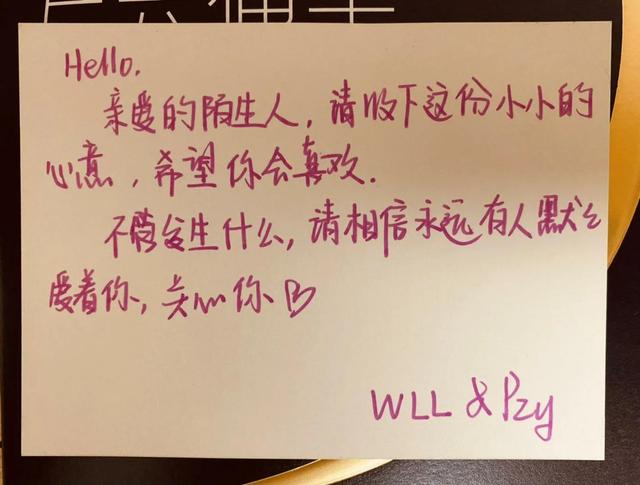 Hello.
亲爱的陌生人，请收下这份小小的
心意，希望你会喜欢.
不管发生什么，请相信永远有人默默
爱着你，关心你
WLL & Pzy